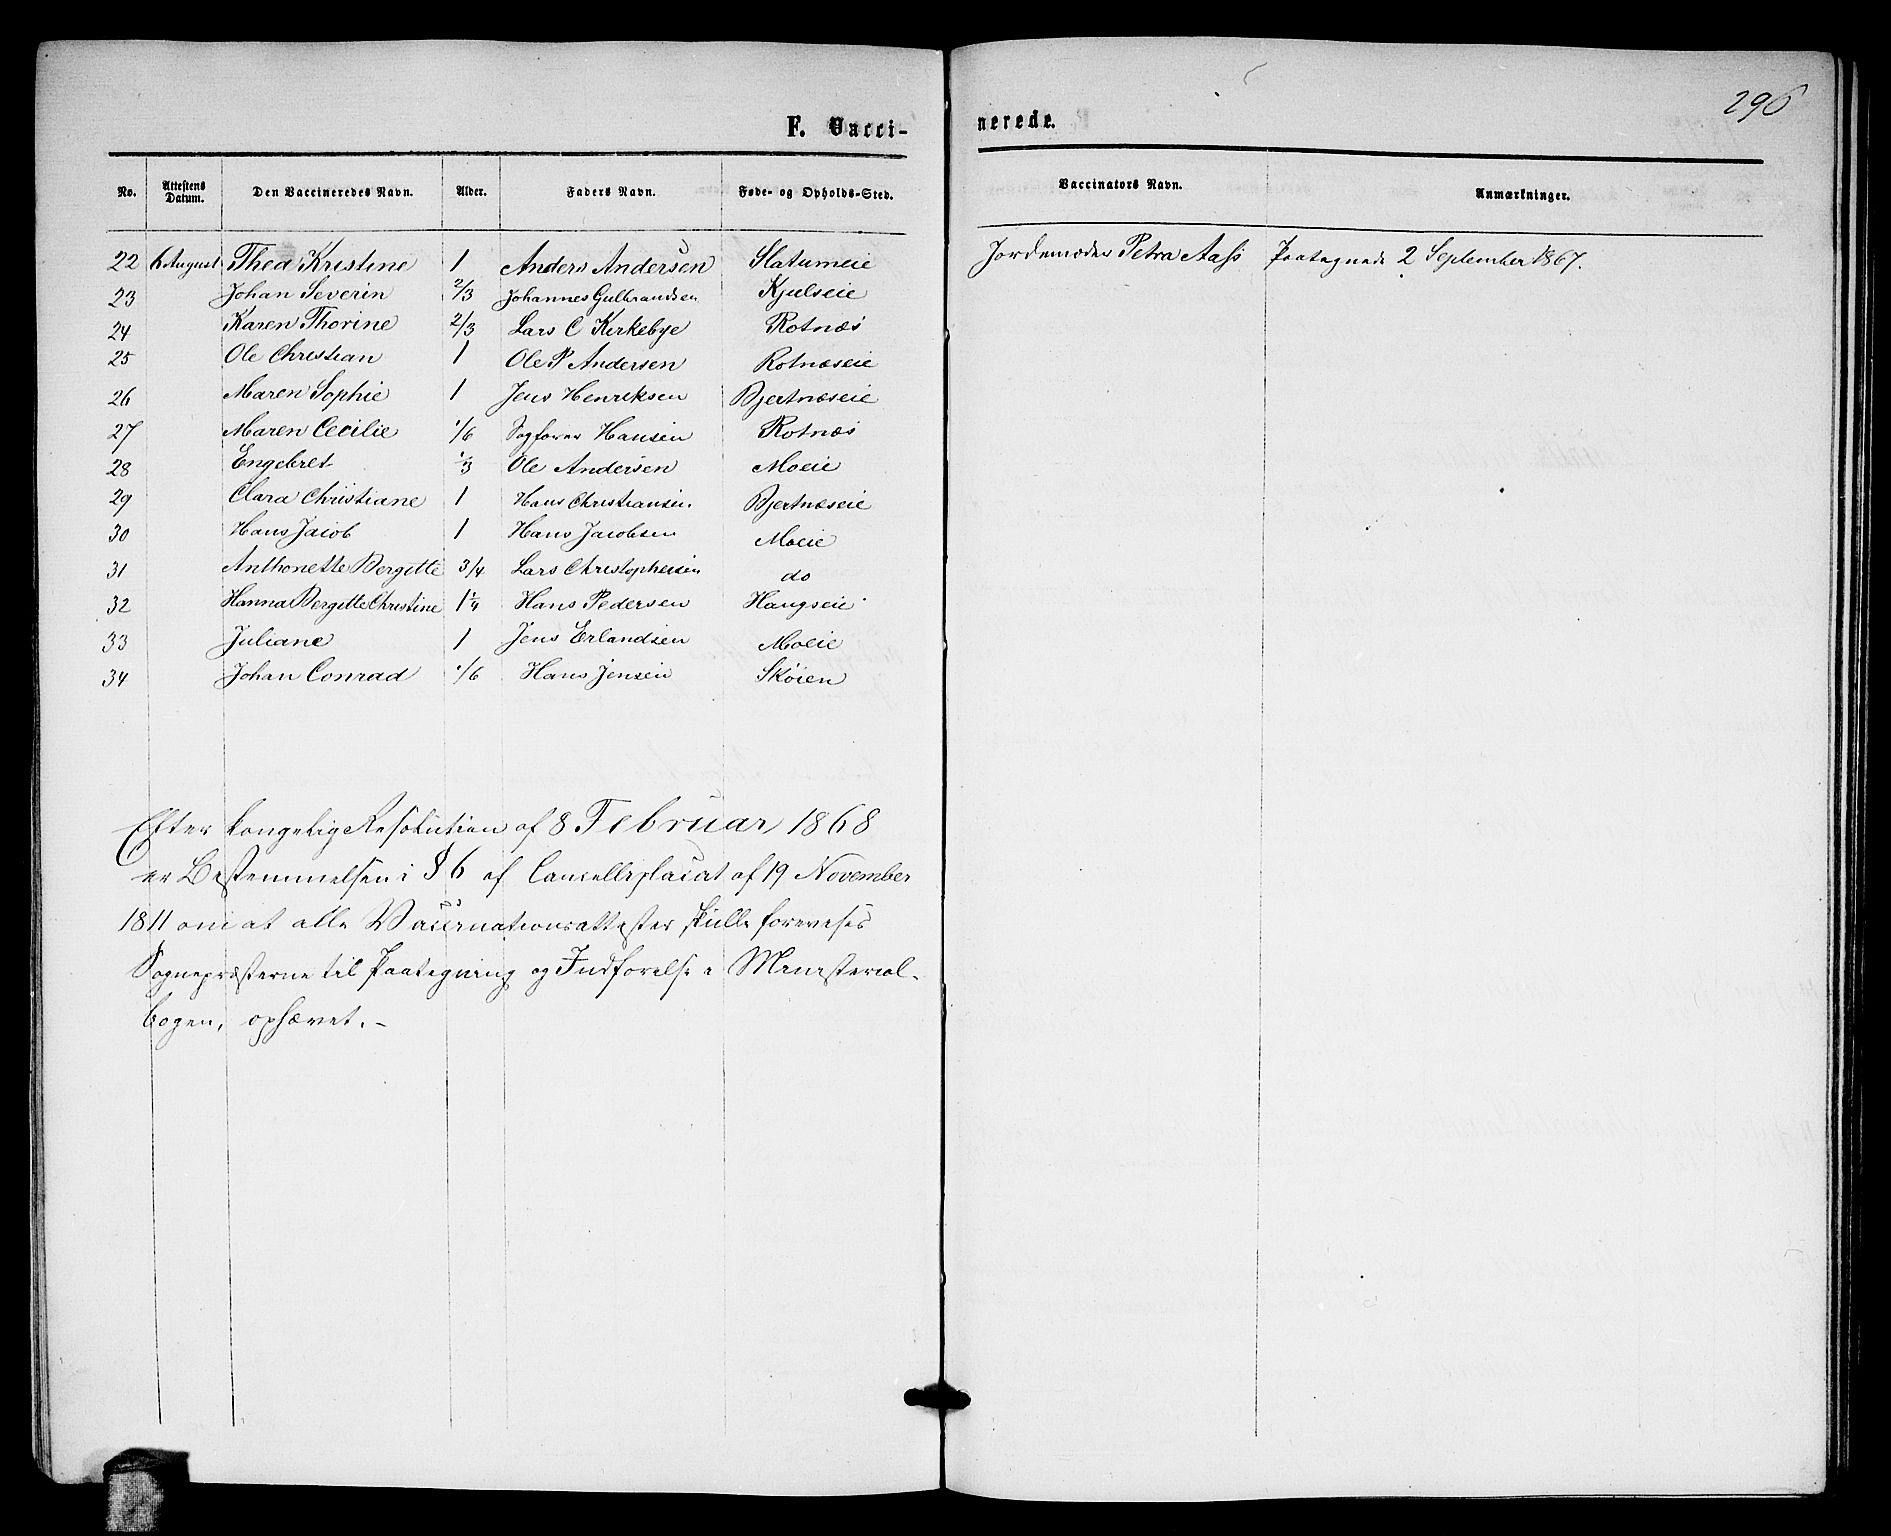 296
F. Vacci-nerede.
No. Attestens Datum. Den Vaccineredes Navn. Alder. Faders Navn. Føde- og Opholds-Sted. Vaccinators Navn. Anmærkninger.
22 6 August Thea Kristine 1 Anders Andersen Slatumeie Jordemoder Petra Aass Paategnede 2 September 1867.
23 Johan Severin 2/3 Johannes Gulbrandsen Kjulseie
24 Karen Thorine 2/3 Lars C Kirkebye Rotnæs
25 Ole Christian 1 Ole P Andersen Rotnæseie
26 Maren Sophie 1 Jens Henriksen Bjertnæseie
27 Maren Cecilie 1/6 Sagfører Hansen Rotnæs
28 Engebret 1/3 Ole Andersen Moeie
29 Clara Christiane 1 Hans Christiansen Bjertnæseie
30 Hans Jacob 1 Hans Jacobsen Moeie
31 Anthonette Bergitte 3/4 Lars Christophersen do
32 Hanna Bergitte Christine 1 1/4 Hans Pedersen Haugseie
33 Juliane 1 Jens Erlandsen Moeie
34 Johan Conrad 1/6 Hans Jensen Skøien
Efter kongelig Resolution af 8 Februar 1868
er Bestemmelsen i § 6 af Cancelliplacat af 19 November
1811 om at alle Vaccinationsattester skulle forevises
Sognepræsterne til Paategning og Indførelse i Ministerial-
bogen, ophævet. -